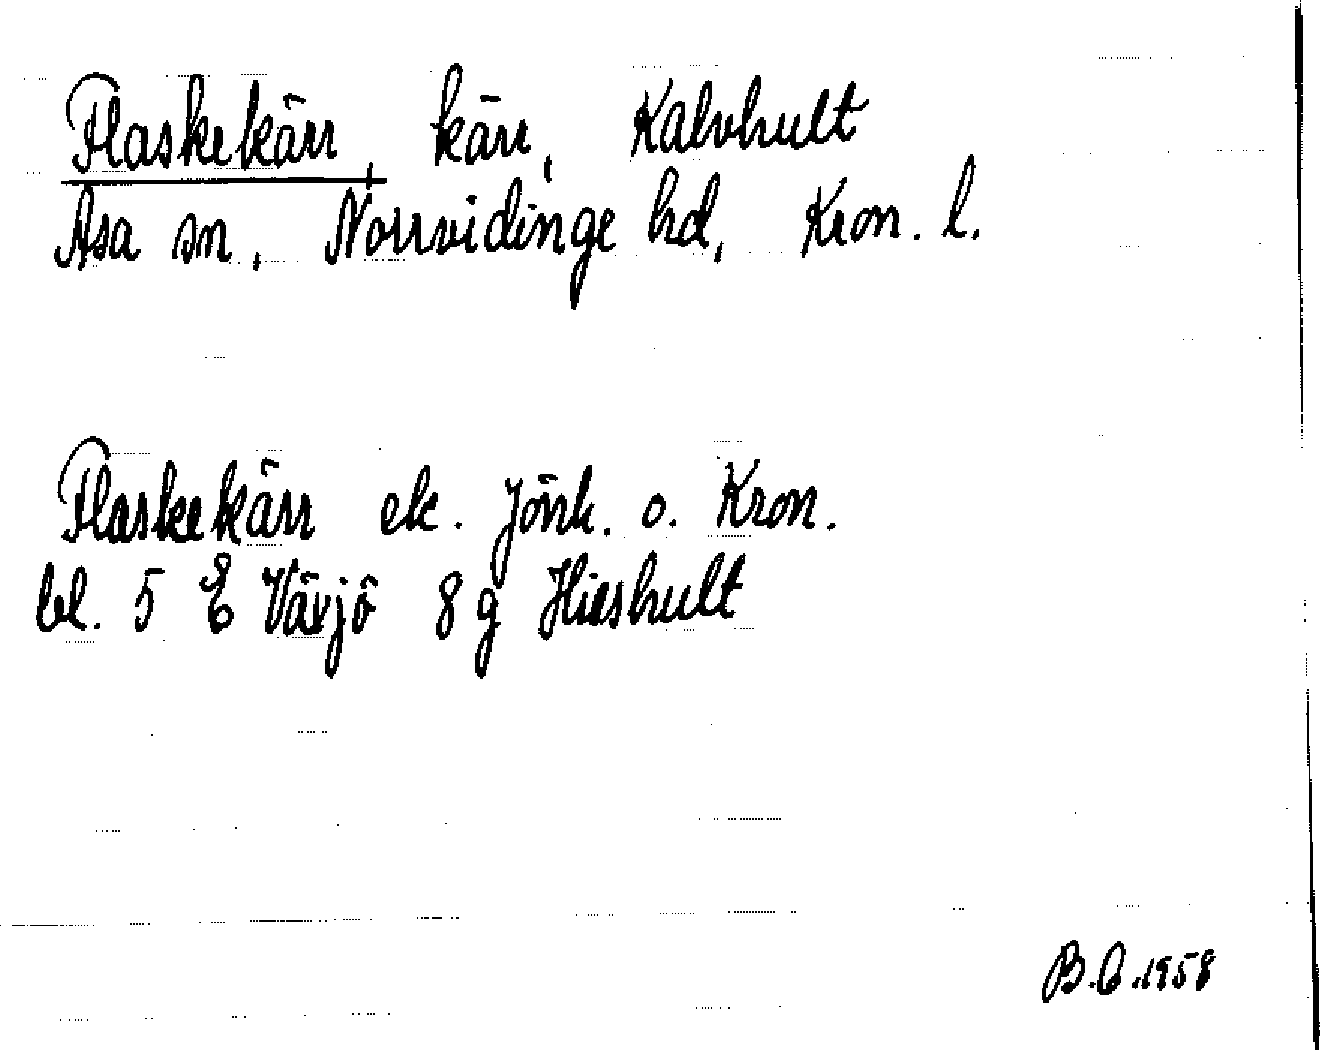 Flaskekärr, kärr, Kalvhult
Asa sn, Norrvidinge hd, Kron. l.
Flaskekärr ek. Jönk. o. Kron.
bl. 5 E Växjö 8 g Hieshult
B.C.1958